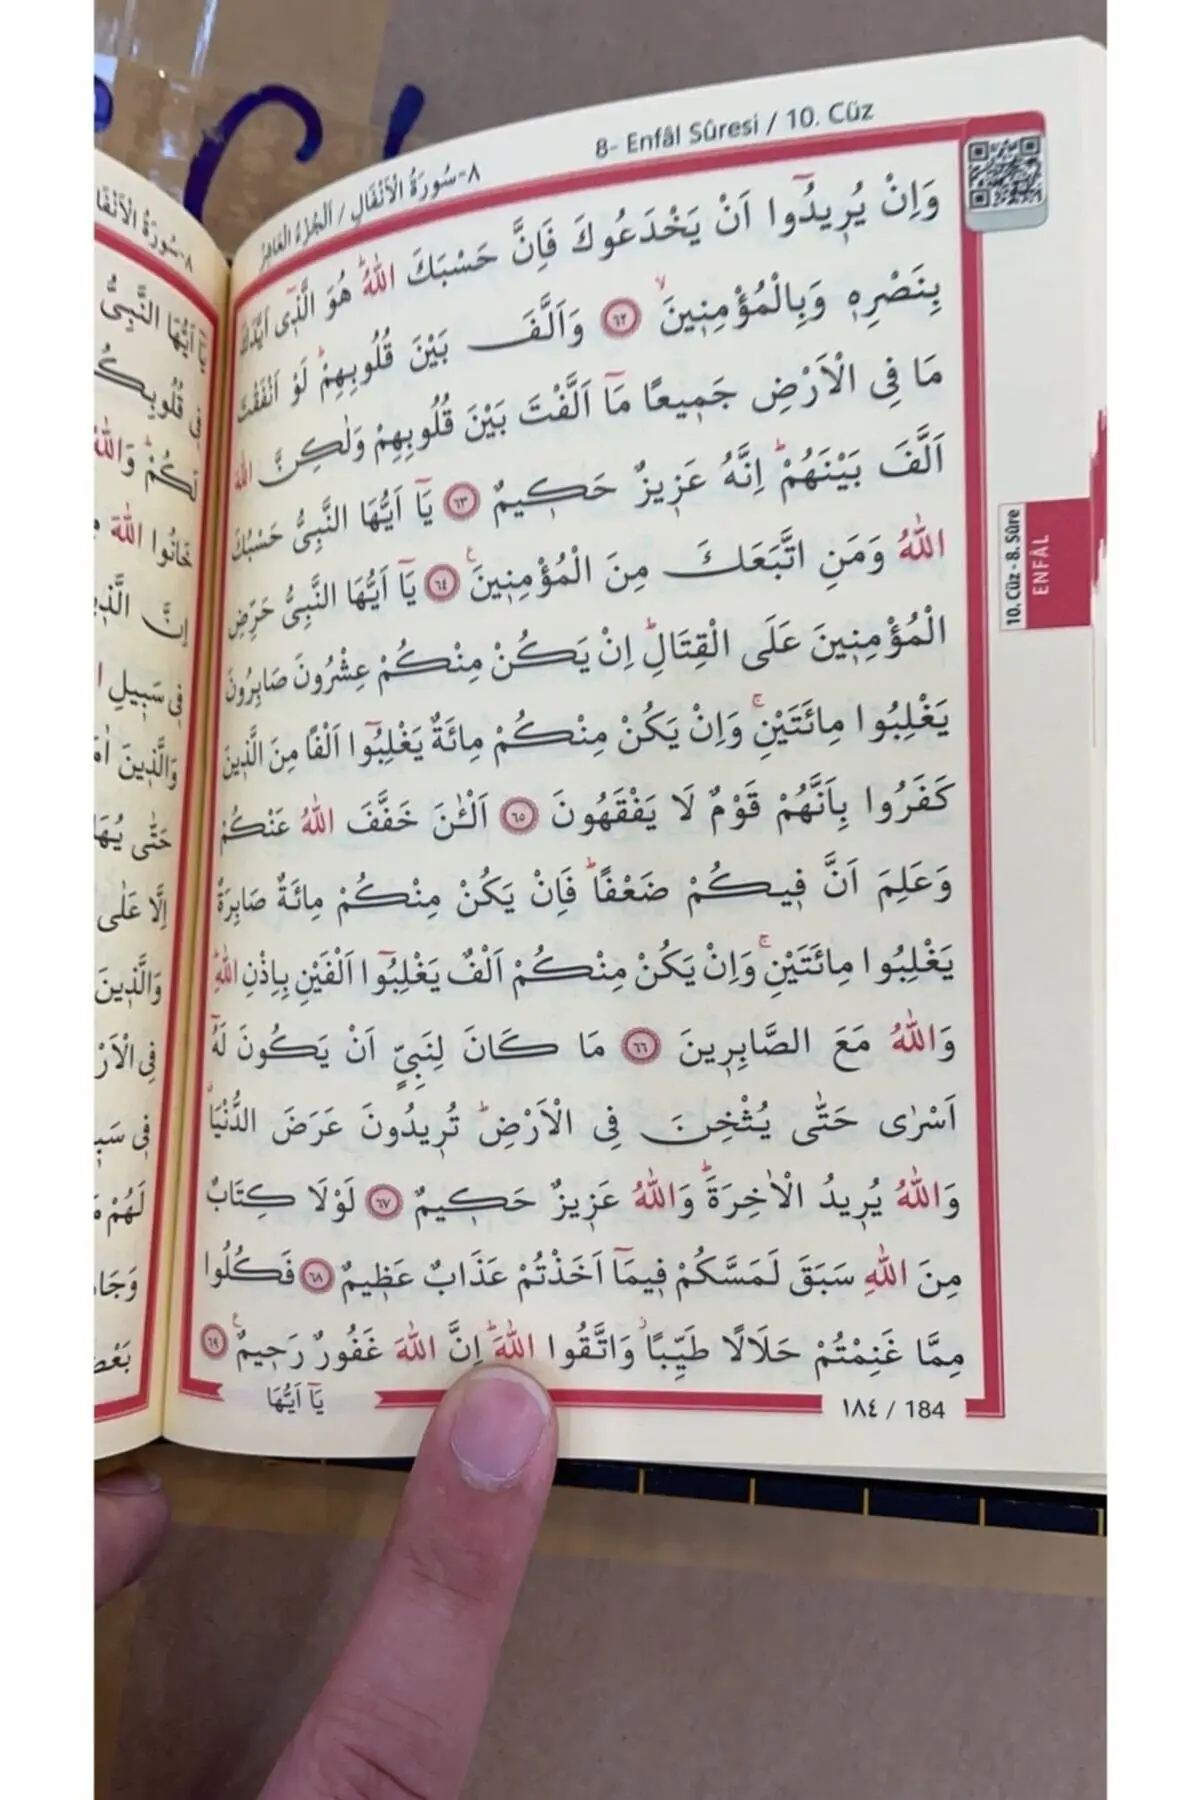 8- Enfâl Sûresi / 10. Cüz
٨-سُورَةُ الْاَنْفَالِ / اَلْجُزْءُ الْعَاشِرُ
وَاِنْ يُرٖيدُٓوا اَنْ يَخْدَعُوكَ فَاِنَّ حَسْبَكَ اللّٰهُؕ هُوَ الَّذٖٓى اَيَّدَكَ
بِنَصْرِهٖ وَبِالْمُؤْمِنٖينَۙ ٦٢ وَاَلَّفَ بَيْنَ قُلُوبِهِمْؕ لَوْ اَنْفَقْتَ
مَا فِى الْاَرْضِ جَمٖيعًا مَٓا اَلَّفْتَ بَيْنَ قُلُوبِهِمْ وَلٰكِنَّ اللّٰهَ
اَلَّفَ بَيْنَهُمْؕ اِنَّهُ عَزٖيزٌ حَكٖيمٌ ٦٣ يَٓا اَيُّهَا النَّبِىُّ حَسْبُكَ
اللّٰهُ وَمَنِ اتَّبَعَكَ مِنَ الْمُؤْمِنٖينَࣖ ٦٤ يَٓا اَيُّهَا النَّبِىُّ حَرِّضِ
الْمُؤْمِنٖينَ عَلَى الْقِتَالِؕ اِنْ يَكُنْ مِنْكُمْ عِشْرُونَ صَابِرُونَ
يَغْلِبُوا مِائَتَيْنِۚ وَاِنْ يَكُنْ مِنْكُمْ مِائَةٌ يَغْلِبُٓوا اَلْفًا مِنَ الَّذٖينَ
كَفَرُوا بِاَنَّهُمْ قَوْمٌ لَا يَفْقَهُونَ ٦٥ اَلْـٰٔنَ خَفَّفَ اللّٰهُ عَنْكُمْ
وَعَلِمَ اَنَّ فٖيكُمْ ضَعْفًاؕ فَاِنْ يَكُنْ مِنْكُمْ مِائَةٌ صَابِرَةٌ
يَغْلِبُوا مِائَتَيْنِۚ وَاِنْ يَكُنْ مِنْكُمْ اَلْفٌ يَغْلِبُٓوا اَلْفَيْنِ بِاِذْنِ اللّٰهِؕ
وَاللّٰهُ مَعَ الصَّابِرٖينَ ٦٦ مَا كَانَ لِنَبِىٍّ اَنْ يَكُونَ لَهُٓ
اَسْرٰى حَتّٰى يُثْخِنَ فِى الْاَرْضِؕ تُرٖيدُونَ عَرَضَ الدُّنْيَاۗ
وَاللّٰهُ يُرٖيدُ الْاٰخِرَةَؕ وَاللّٰهُ عَزٖيزٌ حَكٖيمٌ ٦٧ لَوْلَا كِتَابٌ
مِنَ اللّٰهِ سَبَقَ لَمَسَّكُمْ فٖيمَٓا اَخَذْتُمْ عَذَابٌ عَظٖيمٌ ٦٨ فَكُلُوا
مِمَّا غَنِمْتُمْ حَلَالًا طَيِّبًاؗ وَاتَّقُوا اللّٰهَؕ اِنَّ اللّٰهَ غَفُورٌ رَحٖيمٌࣖ ٦٩
يَٓا اَيُّهَا
١٨٤ / 184
10. Cüz - 8. Sûre
ENFÂL